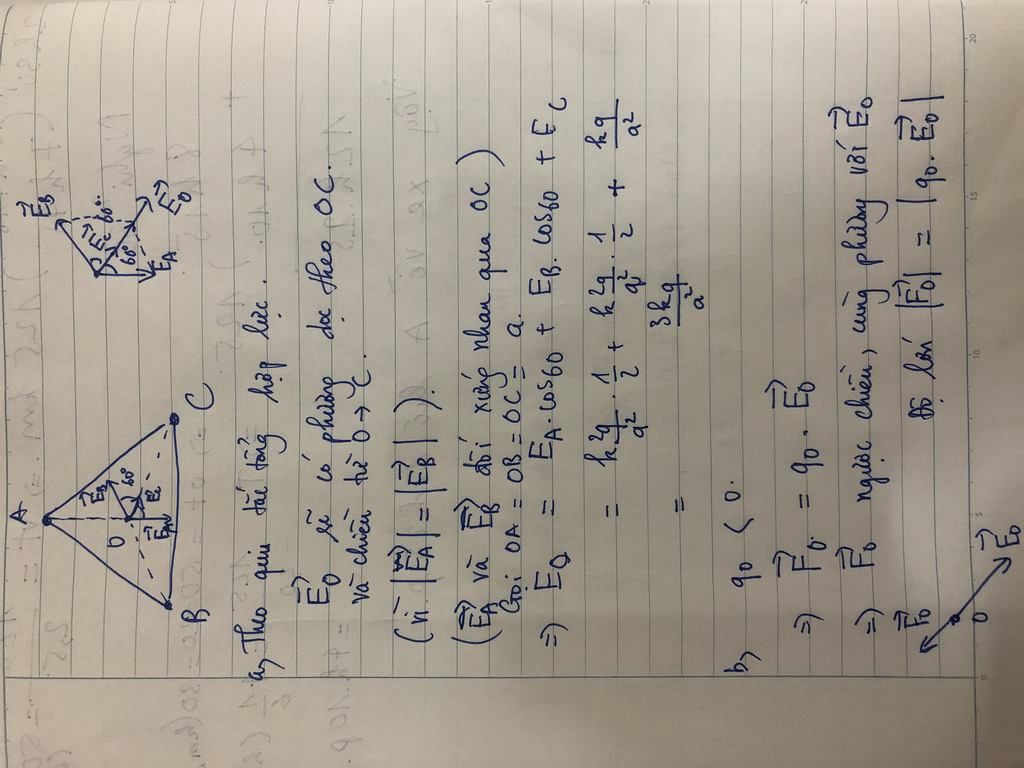 A
B
C
O
E_A
E_B
E_C
60°
E_B
E_C
60°
60°
E_A
E_O
a, Theo qui tắc tổng hợp lực.
E_O sẽ có phương dọc theo OC.
và chiều từ O → C
(vì |E_A| = |E_B|).
(E_A và E_B đối xứng nhau qua OC)
Gọi OA = OB = OC = a.
=) E_O = E_A.cos60 + E_B.cos60 + E_C
= k2q/a² . 1/2 + k2q/a² . 1/2 + kq/a²
= 3kq/a²
b, q0 < 0.
=) F_0 = q0 . E_0
=) F_0 ngược chiều, cùng phương với E_0
Độ lớn |F_0| = |q0 . E_0|
F_0
O
E_0